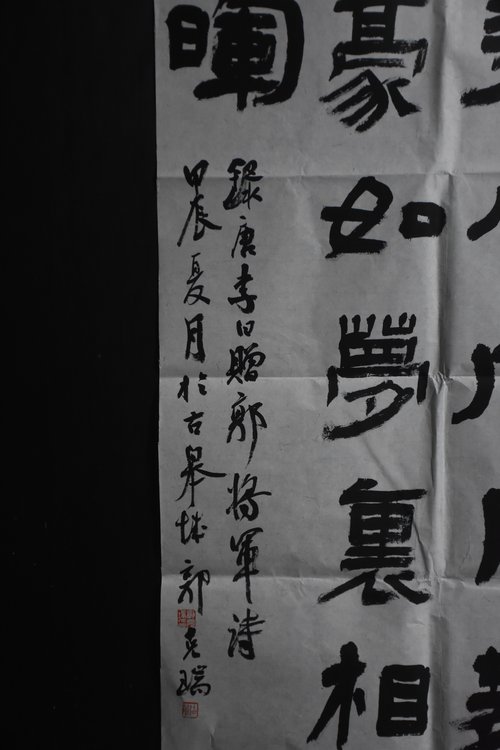 豪如夢裏相
暉
錄唐李白贈郭將軍詩
甲辰夏月於古皋城郭克瑞